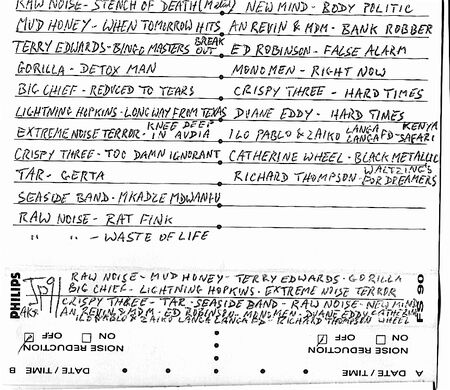 RAW NOISE - STENCH OF DEATH (Melos) NEW MIND - BODY POLITIC
MUD HONEY - WHEN TOMORROW HITS AN REVIN & MDM - BANK ROBBER
TERRY EDWARDS - BINGO MASTERS BREAK OUT ED ROBINSON - FALSE ALARM
GORILLA - DETOX MAN MONOMEN - RIGHT NOW
BIG CHIEF - REDUCED TO TEARS CRISPY THREE - HARD TIMES
LIGHTNING HOPKINS - LONG WAY FROM TEXAS DUANE EDDY - HARD TIMES
EXTREME NOISE TERROR - KNEE DEEP IN AUDIA ILO PABLO & ZAIKO LANGA LANGA FD KENYA SAFARI
CRISPY THREE - TOO DAMN IGNORANT CATHERINE WHEEL - BLACK METALLIC
TAR - GERTA RICHARD THOMPSON - WALTZING'S FOR DREAMERS
SEASIDE BAND - MKADZE MDWANIU
RAW NOISE - RAT FINK
" " - WASTE OF LIFE
PHILIPS
JP91
RAW NOISE - MUD HONEY - TERRY EDWARDS - GORILLA
BIG CHIEF - LIGHTNING HOPKINS - EXTREME NOISE TERROR
CRISPY THREE - TAR - SEASIDE BAND - RAW NOISE - NEW MIND
AN REVIN & MDM - ED ROBINSON - MONOMEN - DUANE EDDY - CATHERINE WHEEL
ILO PABLO & ZAIKO LANGA LANGA FD - RICHARD THOMPSON
FS 90
NOISE REDUCTION ON OFF
NOISE REDUCTION ON OFF
B DATE / TIME
A DATE / TIME